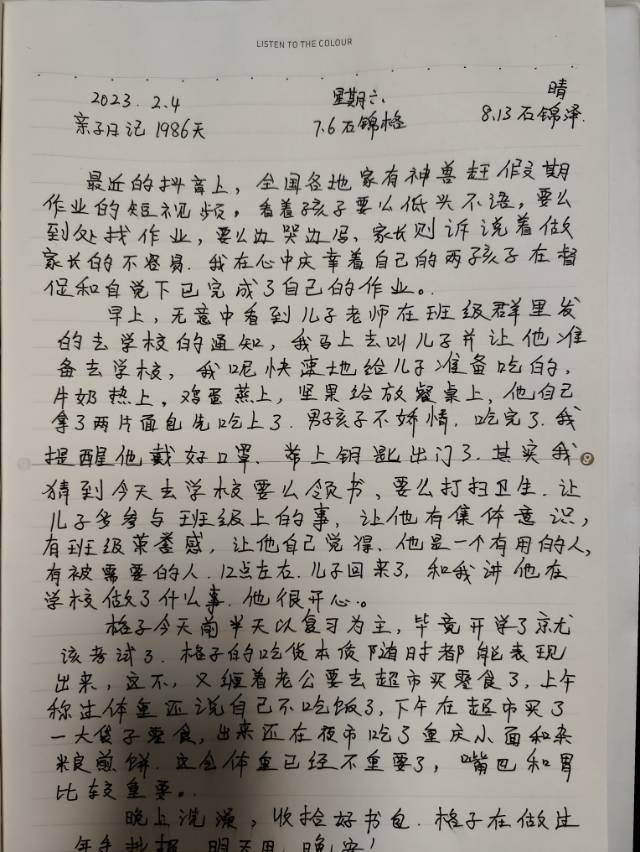 LISTEN TO THE COLOUR
2023. 2.4 星期六 晴
亲子日记 1986天 7.6石锦格 8.13石锦泽
最近的抖音上，全国各地家有神兽赶假期
作业的短视频，看着孩子要么低头不语，要么
到处找作业，要么边哭边写，家长则诉说着做
家长的不容易。我在心中庆幸着自己的两孩子在督
促和自觉下已完成了自己的作业。
早上，无意中看到儿子老师在班级群里发
的去学校的通知，我马上去叫儿子并让他准
备去学校，我呢快速地给儿子准备吃的，
牛奶热上，鸡蛋蒸上，坚果给放餐桌上，他自己
拿了两片面包先吃上了。男孩子不娇情，吃完了，我
提醒他戴好口罩，带上钥匙出门了。其实我
猜到今天去学校要么领书、要么打扫卫生，让
儿子多参与班级上的事，让他有集体意识，
有班级荣誉感，让他自己觉得，他是一个有用的人，
有被需要的人。12点左右，儿子回来了，和我讲他在
学校做了什么事，他很开心。
格子今天前半天以复习为主，毕竟开学了就
该考试了。格子的吃货本质随时都能表现
出来，这不，又缠着老公要去超市买零食了，上午
称过体重还说自己不吃饭了，下午在超市买了
一大袋子零食，出来还在夜市吃了重庆小面和杂
粮煎饼。这会体重已经不重要了，嘴巴和胃
比较重要。
晚上洗澡，收拾好书包。格子在做过
年手抄报，明天用，晚安！